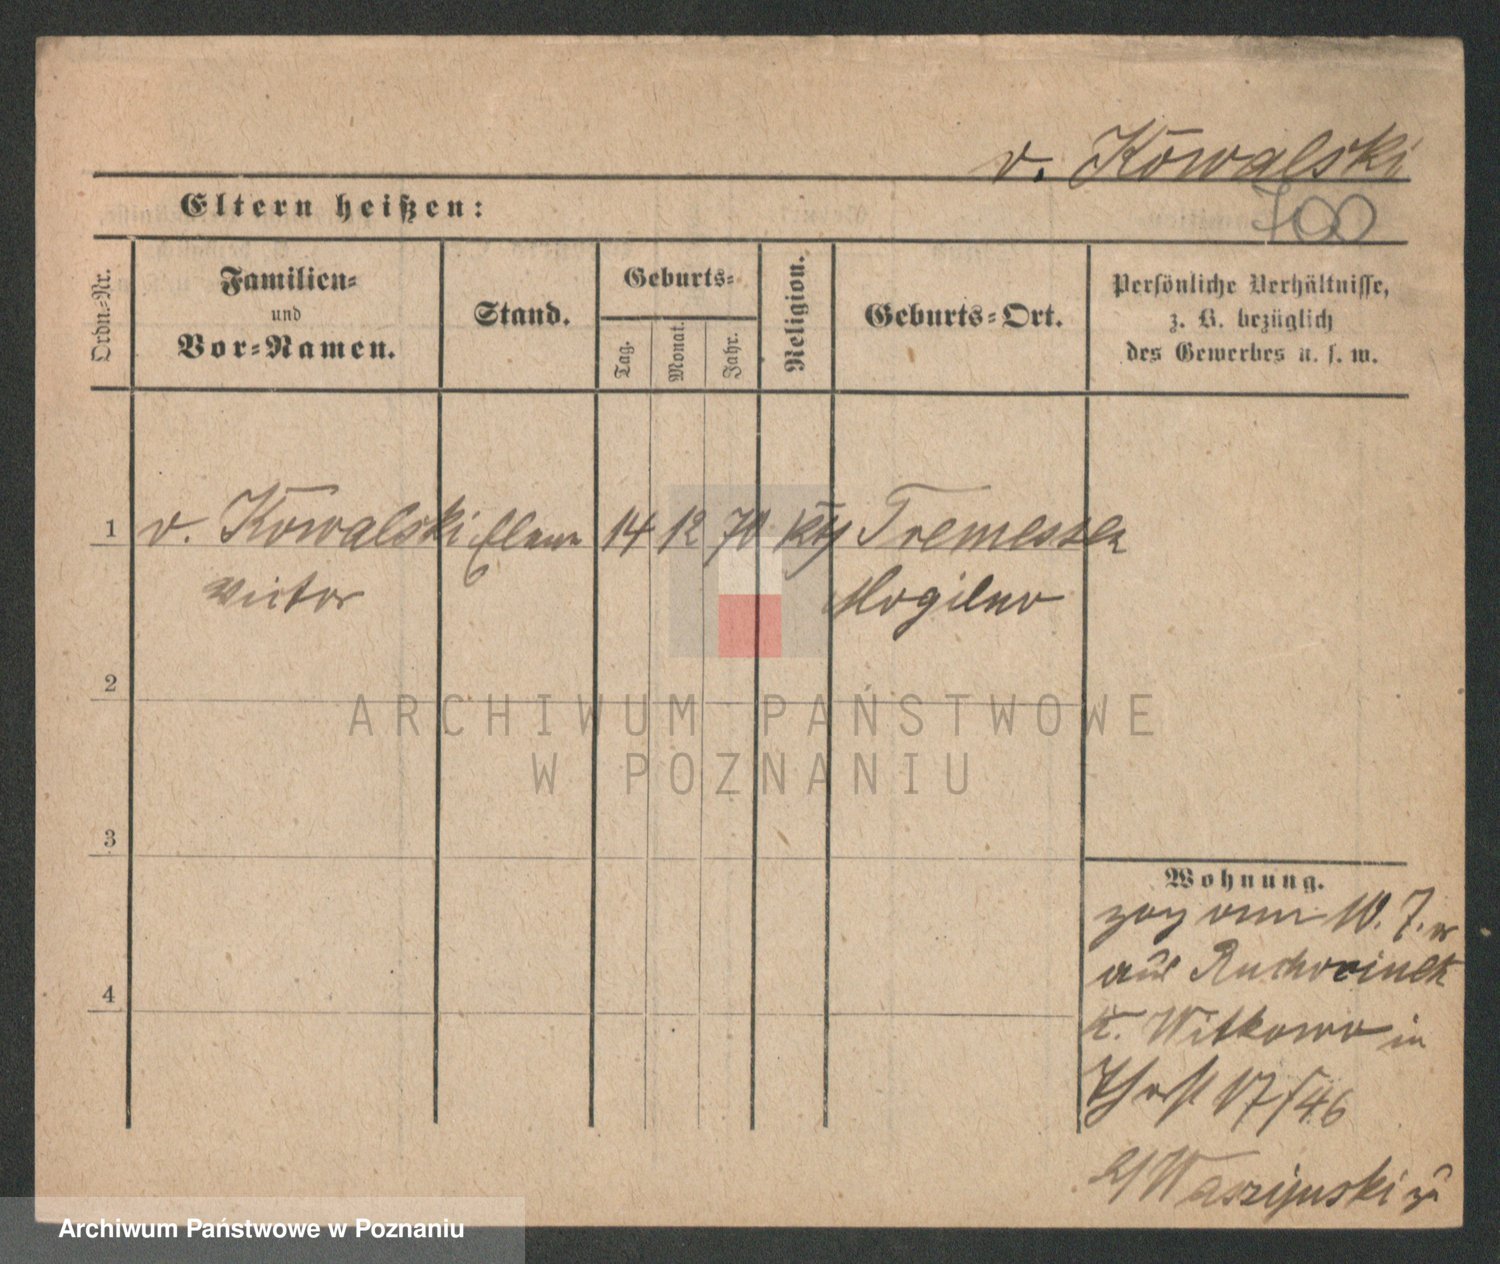 v. Kowalski
700
Eltern heißen:
Ordn.-Nr.
Familien-
und
Vor-Namen.
Stand.
Geburts-
Tag.
Monat.
Jahr.
Religion.
Geburts-Ort.
Persönliche Verhältnisse,
z. B. bezüglich
des Gewerbes u. s. w.
1
v. Kowalski 14 12 70 kth Tremessen
Victor Mogilno
2
ARCHIWUM PAŃSTWOWE
W POZNANIU
3
Wohnung.
zog vom 10. 7. er
aus
4
K. Witkowo in
17/46
zu
Archiwum Państwowe w Poznaniu